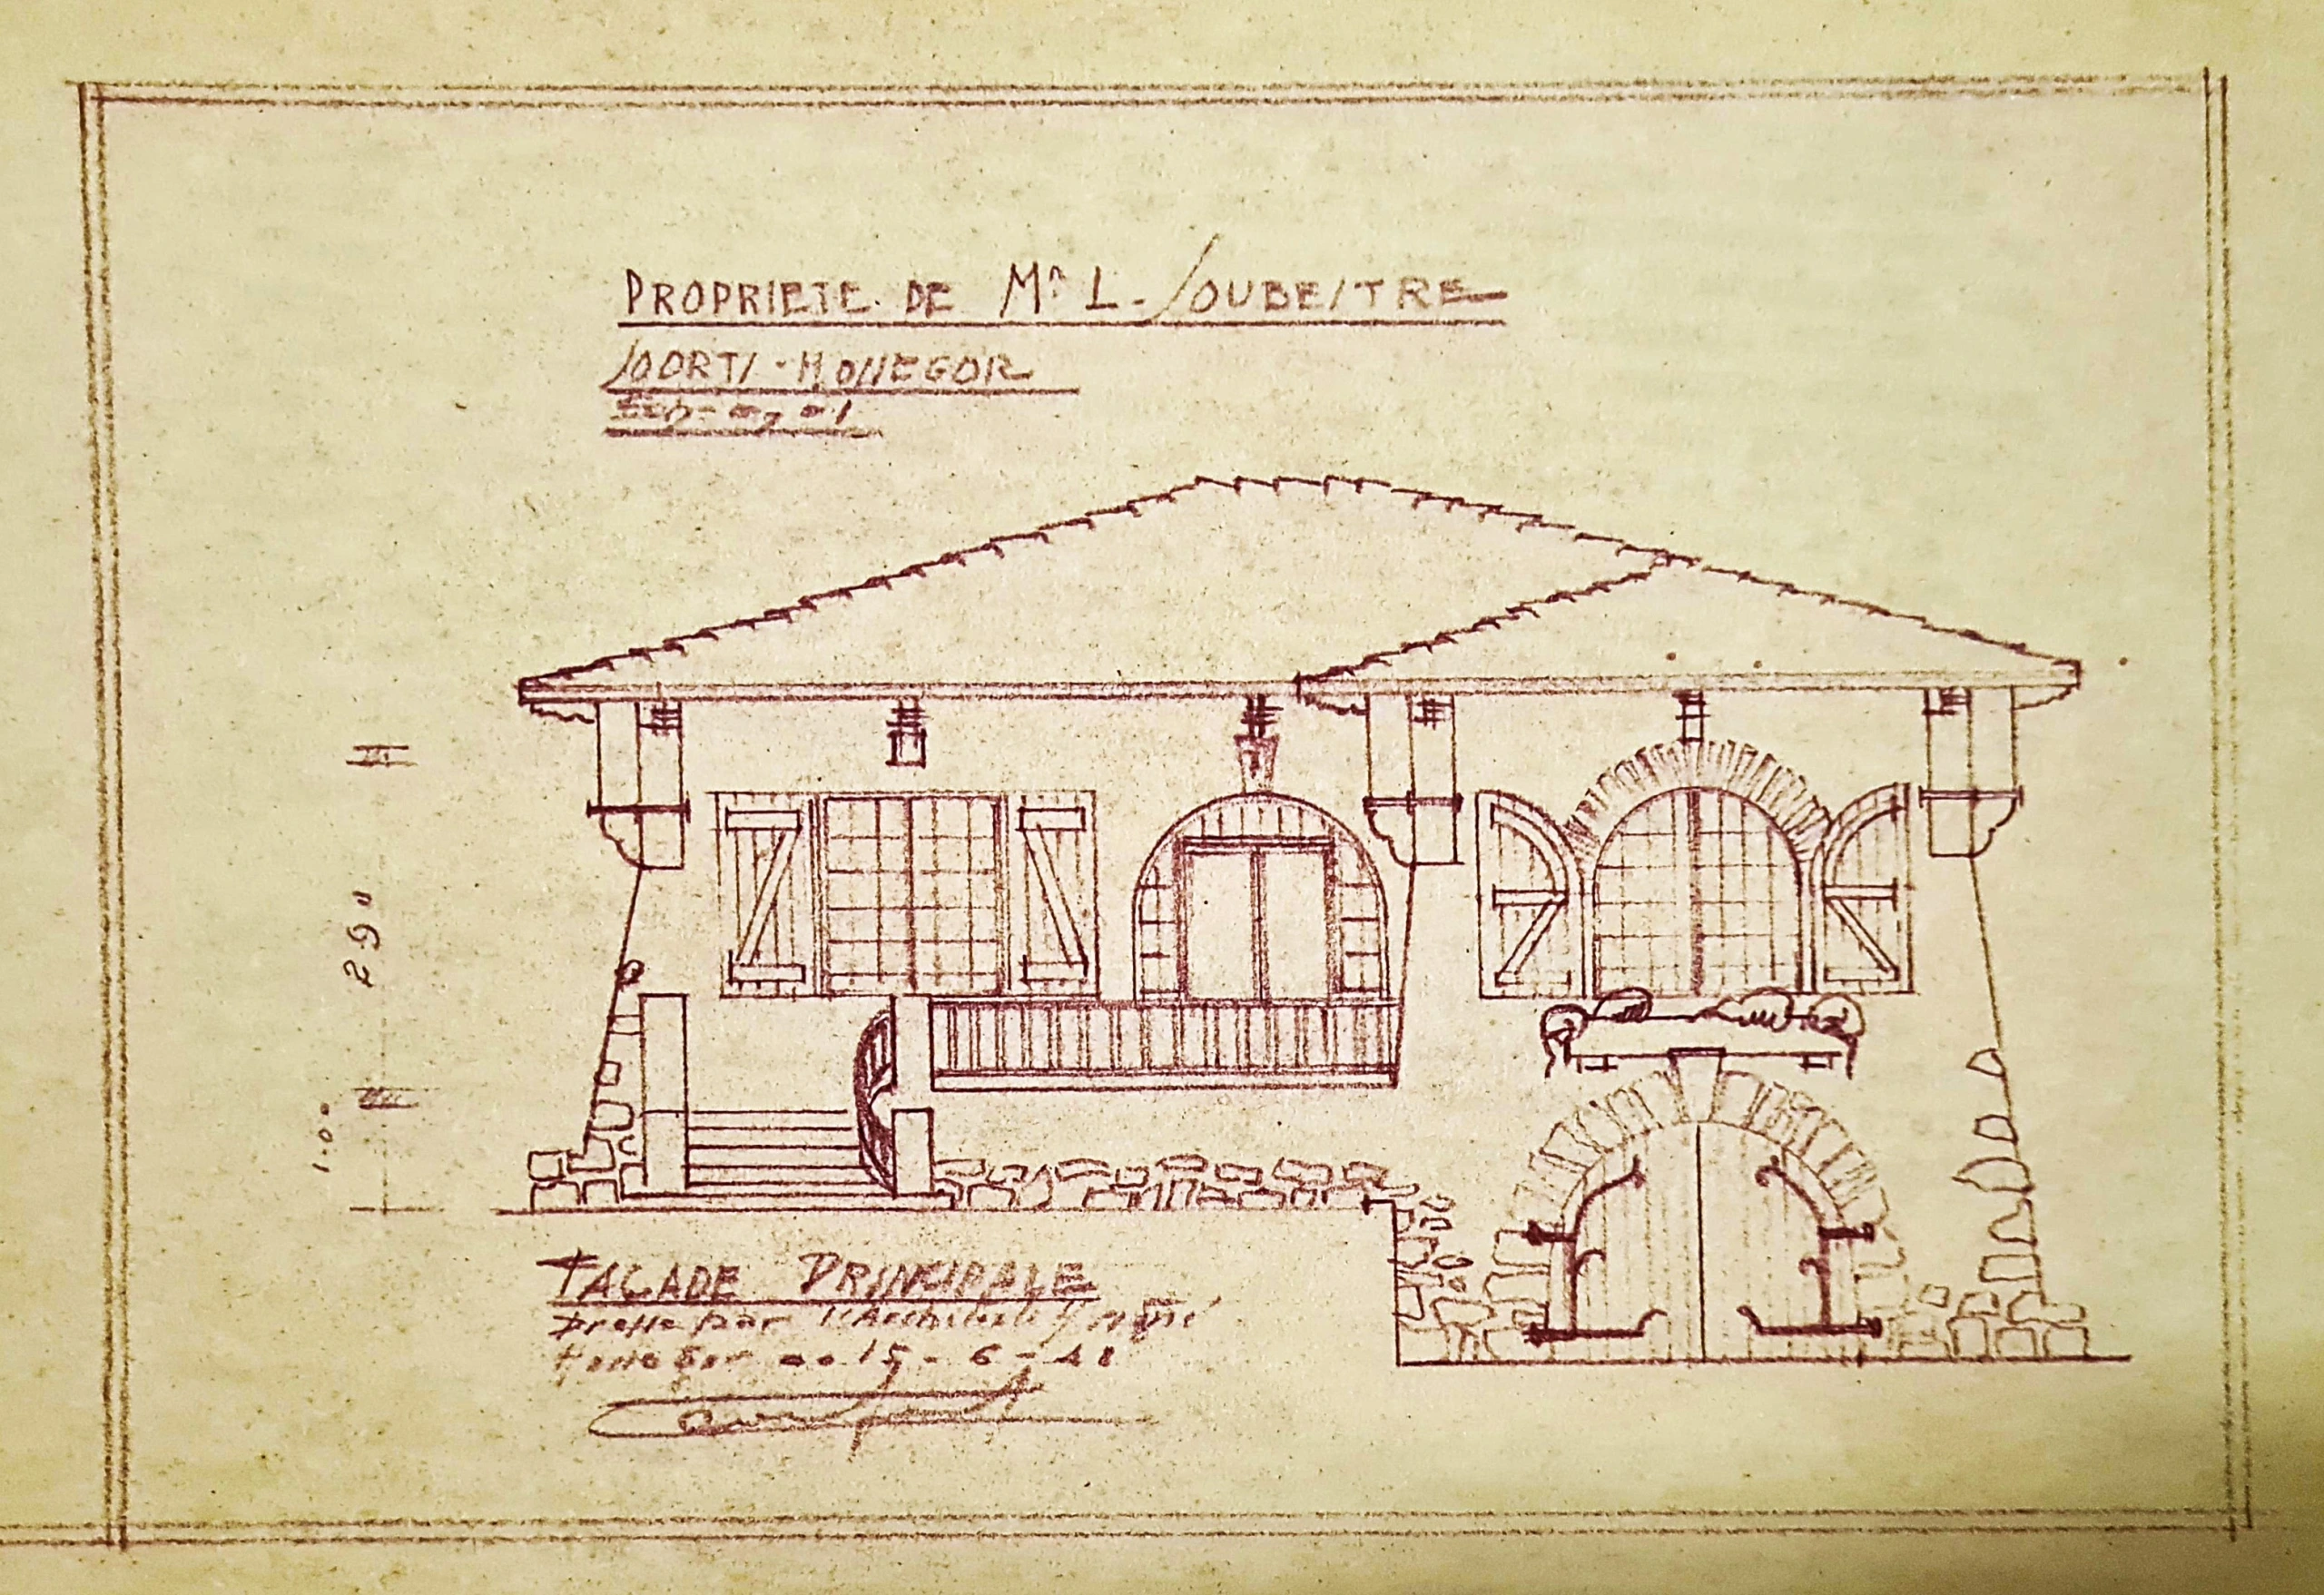 PROPRIETE DE Mr L. SOUBEITRE
SOORTS-HOSSEGOR
Ech- 0,01
2.90
1.00
FAÇADE PRINCIPALE
Dressé par l'Architecte
Hossegor 15-6-48